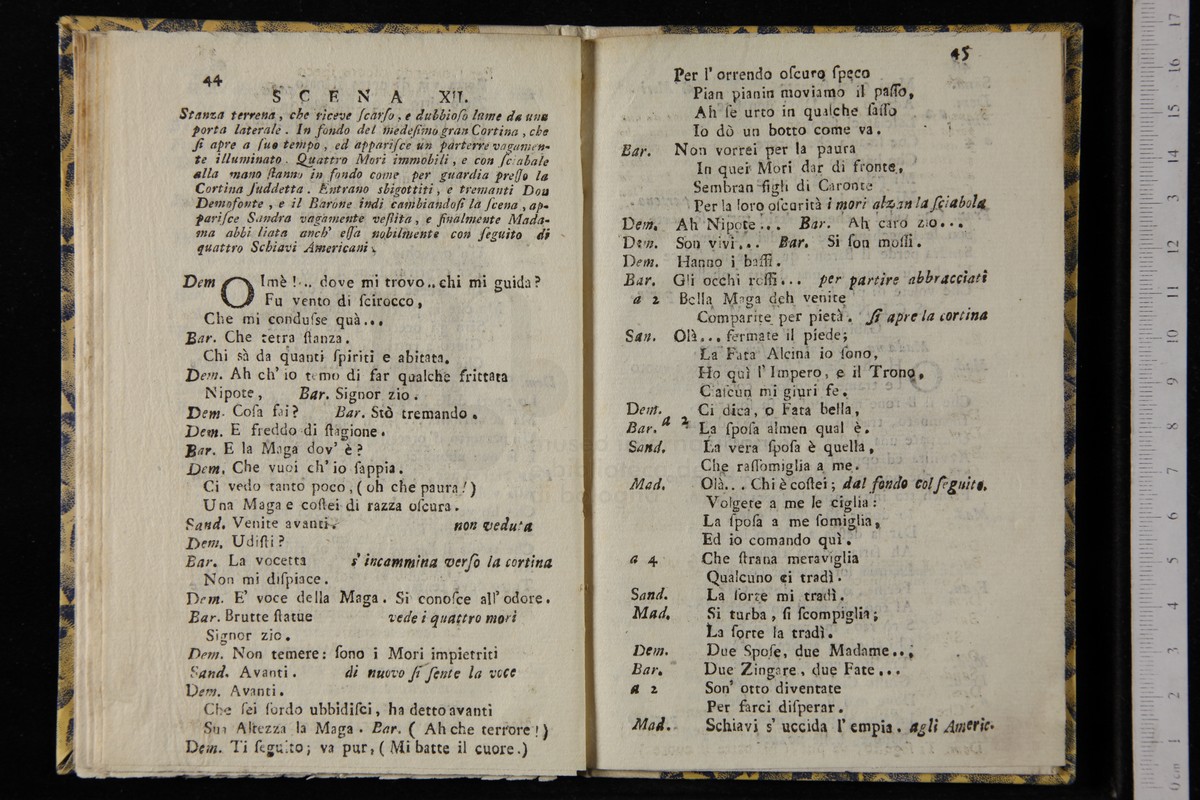 44
SCENA XII.
Stanza terrena, che riceve ſcarſo, e dubbioſo lume da una
porta laterale. In fondo del medeſimo gran Cortina, che
ſi apre a ſuo tempo, ed appariſce un parterre vagamen-
te illuminato. Quattro Mori immobili, e con ſciabale
alla mano ſtanno in fondo come per guardia preſſo la
Cortina ſuddetta. Entrano sbigottiti, e tremanti Don
Demofonte, e il Barone indi cambiandoſi la ſcena, ap-
pariſce Sandra vagamente veſtita, e finalmente Mada-
ma abbigliata anch' eſſa nobilmente con ſeguito di
quattro Schiavi Americani.
Dem OImè!... dove mi trovo.. chi mi guida?
Fu vento di ſcirocco,
Che mi conduſse quà...
Bar. Che tetra ſtanza.
Chi sà da quanti ſpiriti e abitata.
Dem. Ah ch' io temo di far qualche frittata
Nipote, Bar. Signor zio.
Dem. Coſa fai? Bar. Stò tremando.
Dem. E freddo di ſtagione.
Bar. E la Maga dov' è?
Dem. Che vuoi ch' io ſappia.
Ci vedo tanto poco, (oh che paura!)
Una Maga e coſtei di razza oſcura.
Sand. Venite avanti. non veduta
Dem. Udiſti?
Bar. La vocetta s' incammina verſo la cortina
Non mi diſpiace.
Dem. E' voce della Maga. Si conoſce all' odore.
Bar. Brutte ſtatue vede i quattro mori
Signor zio.
Dem. Non temere: ſono i Mori impietriti
Sand. Avanti. di nuovo ſi ſente la voce
Dem. Avanti.
Che ſei ſordo ubbidiſci, ha detto avanti
Sua Altezza la Maga. Bar. (Ah che terrore!)
Dem. Ti ſeguito; va pur, (Mi batte il cuore.)
45
Per l' orrendo oſcuro ſpeco
Pian pianin moviamo il paſſo,
Ah ſe urto in qualche ſaſſo
Io dò un botto come va.
Bar. Non vorrei per la paura
In quei Mori dar di fronte,
Sembran figli di Caronte
Per la loro oſcurità i mori alzan la ſciabola
Dem. Ah Nipote... Bar. Ah caro zio...
Dem. Son vivi... Bar. Si ſon moſſi.
Dem. Hanno i baffi.
Bar. Gli occhi roſſi... per partire abbracciati
a 2 Bella Maga deh venite
Comparite per pietà. ſi apre la cortina
San. Olà... fermate il piede;
La Fata Alcina io ſono,
Ho quì l' Impero, e il Trono,
Ciaſcun mi giuri fe.
Dem. Ci dica, o Fata bella,
Bar. a 2 La ſpoſa almen qual è.
Sand. La vera ſpoſa è quella,
Che raſſomiglia a me.
Mad. Olà... Chi è coſtei; dal fondo col ſeguito.
Volgete a me le ciglia:
La ſpoſa a me ſomiglia,
Ed io comando quì.
a 4 Che ſtrana meraviglia
Qualcuno ci tradì.
Sand. La ſorte mi tradì.
Mad. Si turba, ſi ſcompiglia;
La ſorte la tradì.
Dem. Due Spoſe, due Madame...
Bar. Due Zingare, due Fate...
a 2 Son' otto diventate
Per farci diſperar.
Mad. Schiavi s' uccida l' empia. agli Americ.